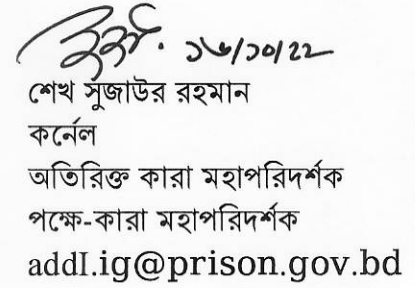 ১৬/১০/২২
শেখ সুজাউর রহমান
কর্নেল
অতিরিক্ত কারা মহাপরিদর্শক
পক্ষে-কারা মহাপরিদর্শক
addI.ig@prison.gov.bd